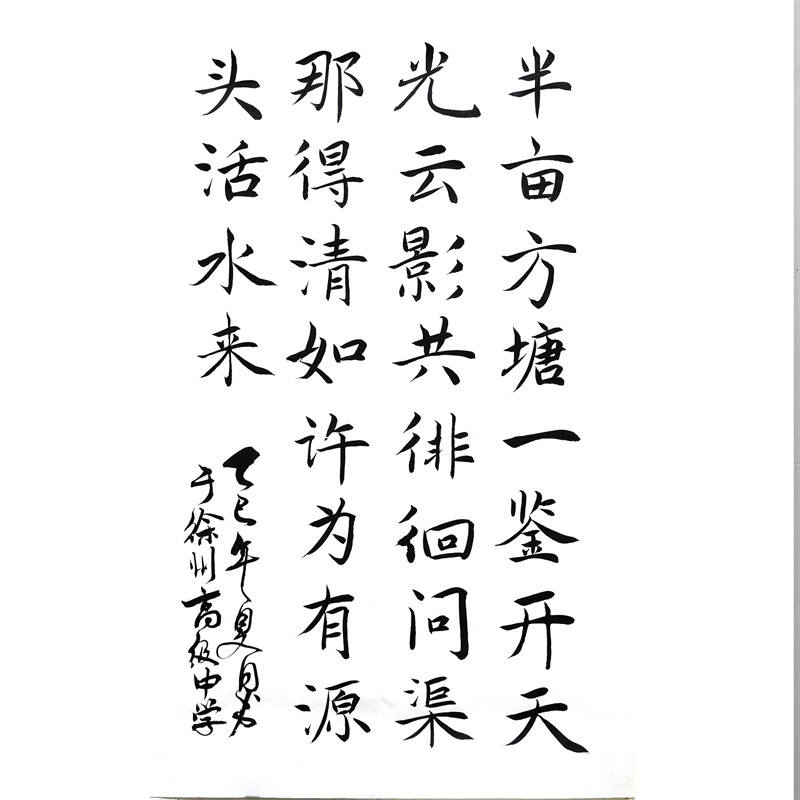 半亩方塘一鉴开天
光云影共徘徊问渠
那得清如许为有源
头活水来
乙巳年夏月书
于徐州高级中学